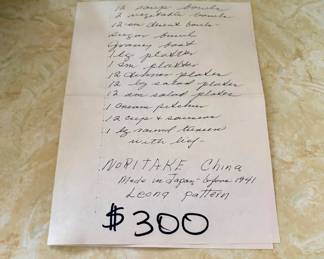 12 soup bowls
2 vegetable bowls
12 sm desert bowls
Sugar bowl
Gravey boat
1 lg platter
1 sm platter
12 dinner plates
12 lg salad plates
12 sm salad plates
1 cream pitcher
12 cup & saucers
1 lg round tureen
with lid
NORITAKE China
Made in Japan - before 1941
Leona pattern
$300